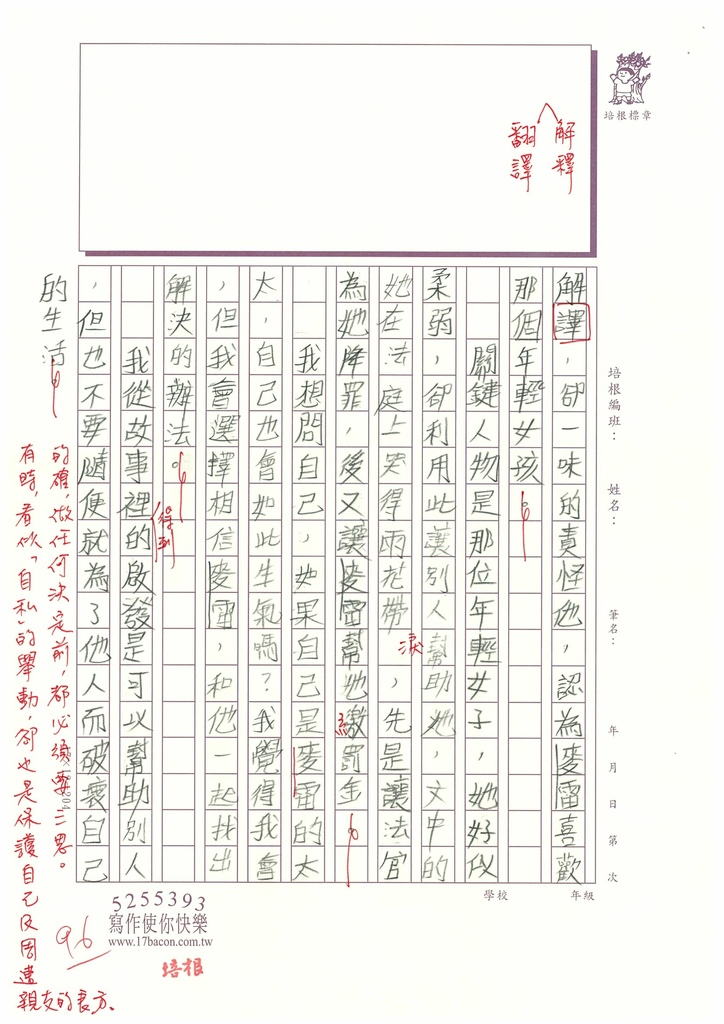 培根標章
解釋
翻譯
培根編班：
姓名：
筆名：
年
月
日
第
次
學校
年級
解譯，卻一味的責怪他，認為麥雷喜歡
那個年輕女孩。
關鍵人物是那位年輕女子，她好似
柔弱，卻利用此讓別人幫助她，文中的
她在法庭上哭得雨花帶淚，先是讓法官
為她降罪，後又讓麥雷幫她繳罰金。
我想問自己，如果自己是麥雷的太
太，自己也會如此生氣嗎？我覺得我會
，但我會選擇相信麥雷，和他一起找出
解決的辦法。
得到
我從故事裡的啟發是可以幫助別人
，但也不要隨便就為了他人而破壞自己
的生活。
的確，做任何決定前，都必須要三思。
有時，看似「自私」的舉動，卻也是保護自己及周遭
親友的良方。
96
5255393
寫作使你快樂
www.17bacon.com.tw
培根